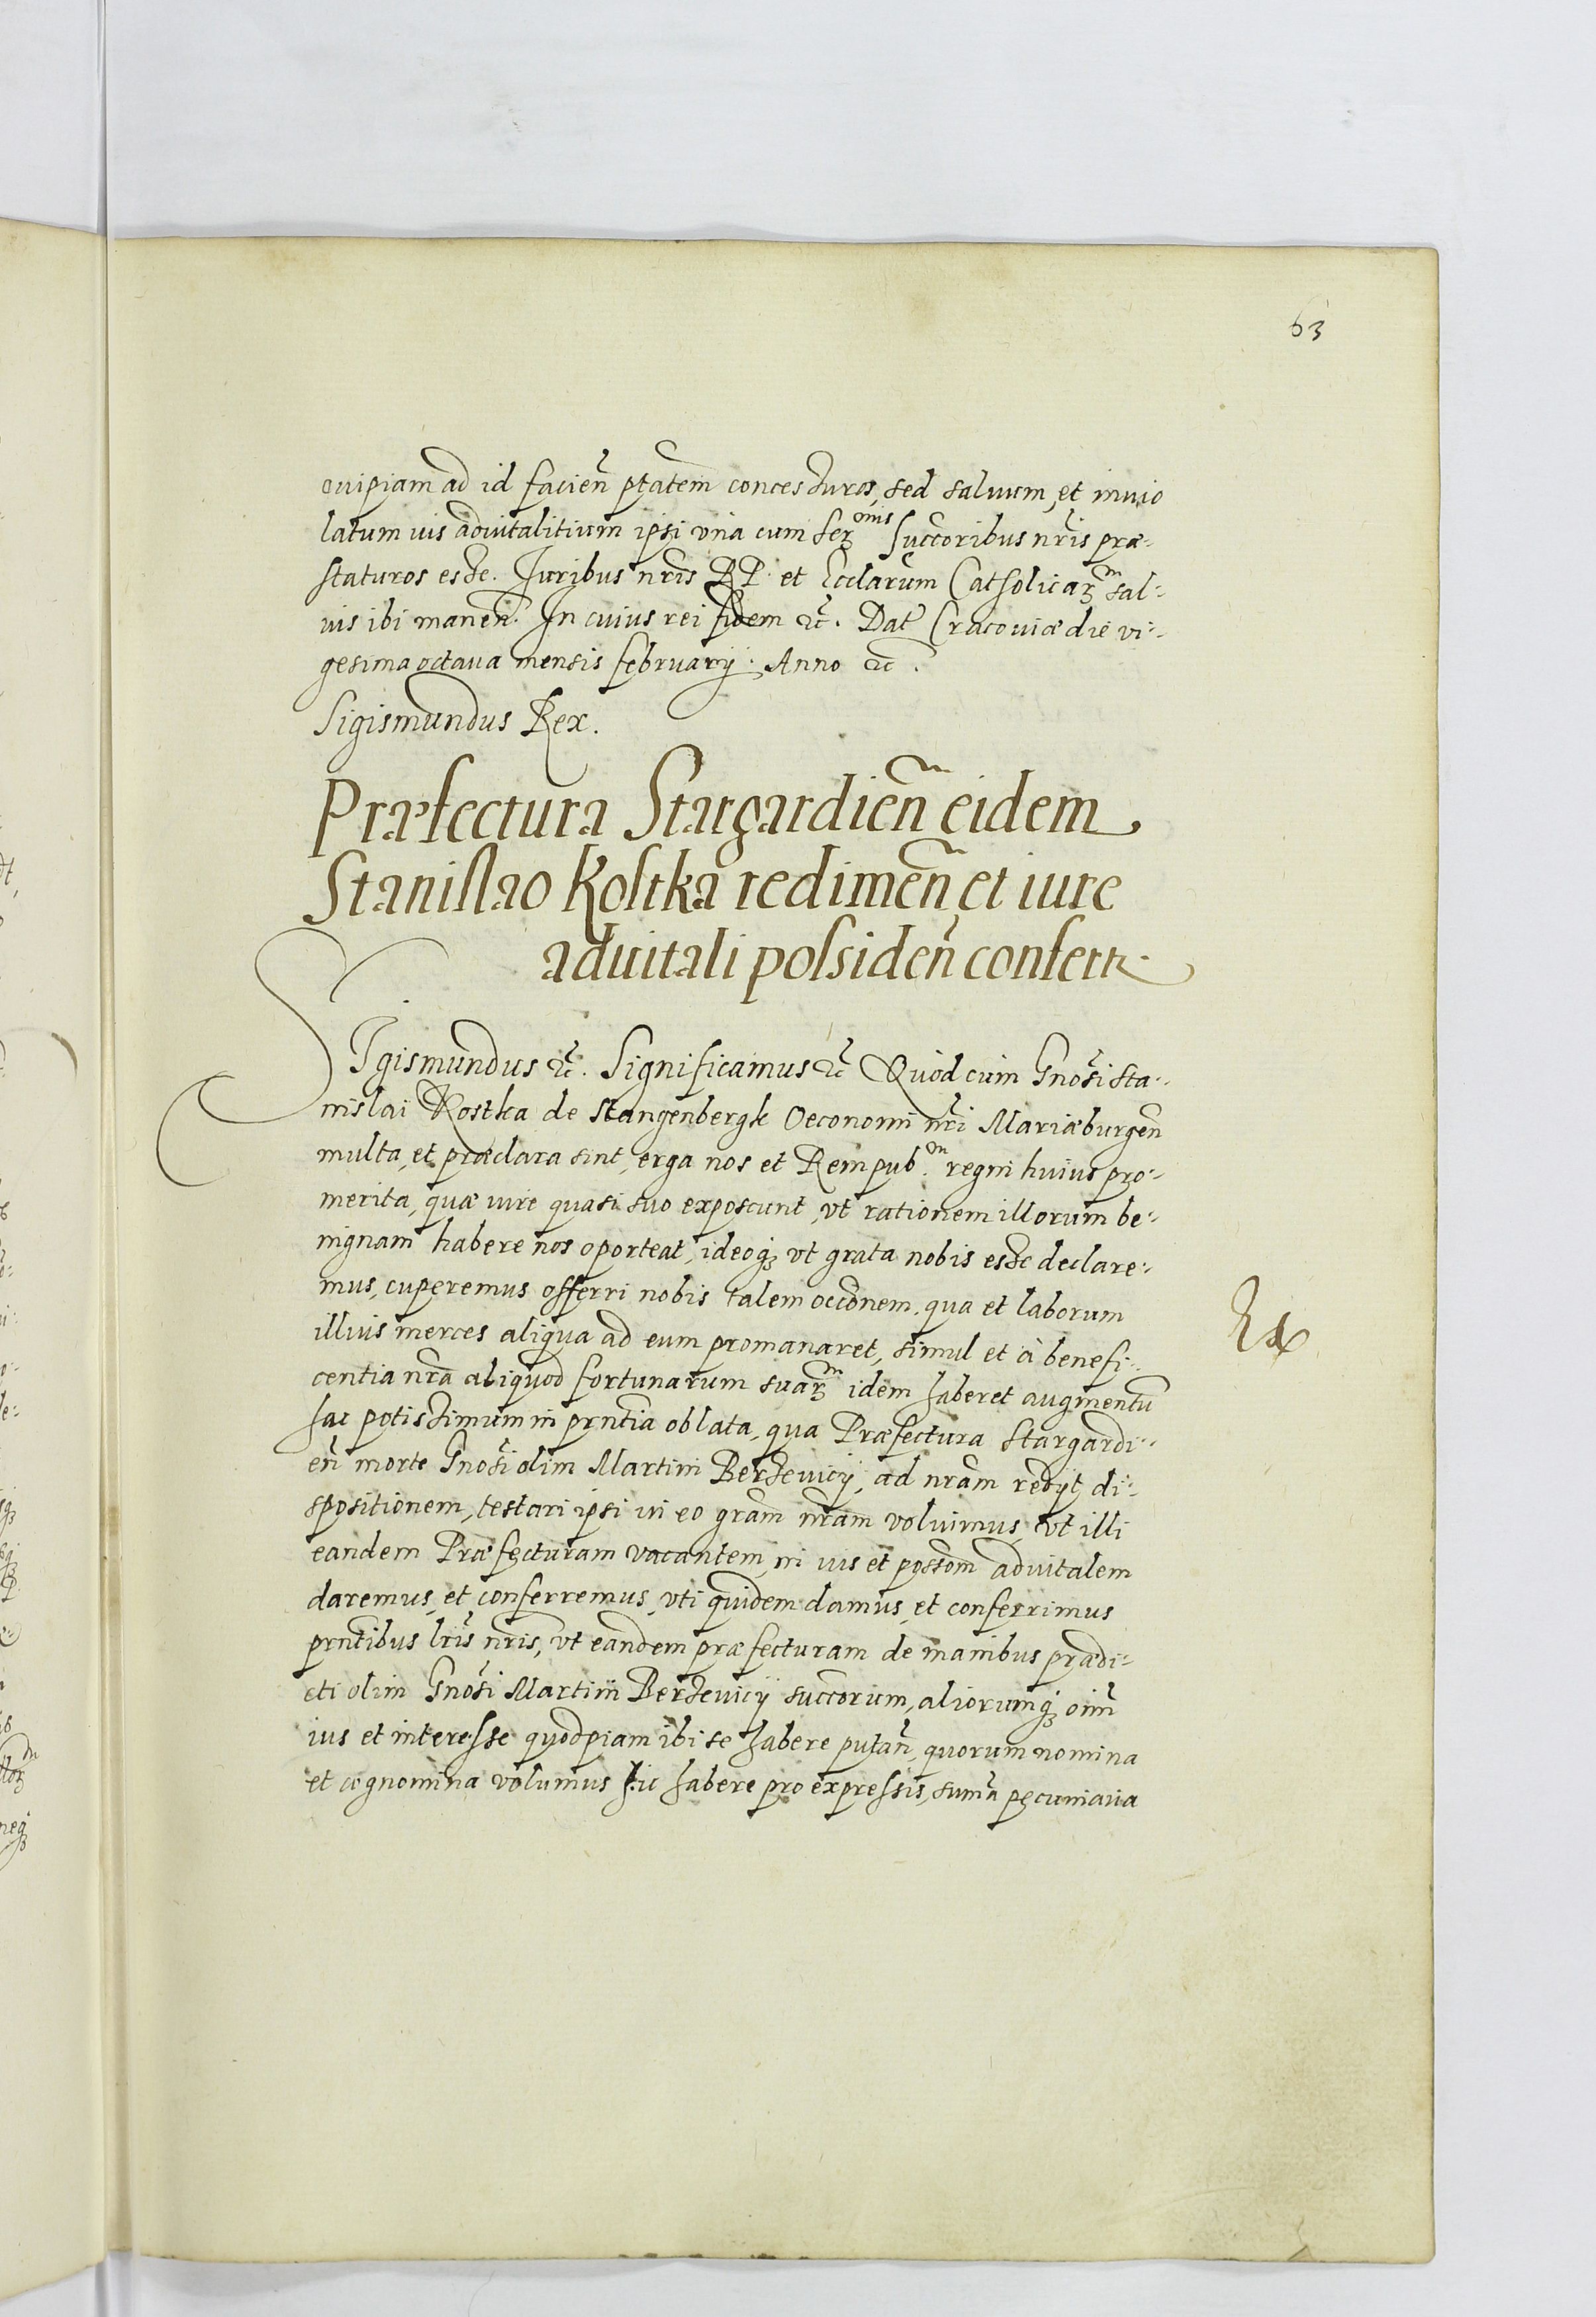 63
cuipiam ad id facień ptatem concessuros, sed saluum, et inuio
latum ius aduitalitium ipsi vna cum Ser\u1d52\u207f\u2071\u02e2 Succoribus nris præ-
staturos esse. Juribus nris RP. et Ecclarum Catholicarꝫᵐ sal-
uis ibi maneń. In cuius rei fidem ꝛc̃. Dat Cracouiæ die vi-
gesima octaua mensis february. Anno ꝛc.
Sigismundus Rex.
Præfectura Stargardień eidem
Stanislao Kostka redimeń et iure
aduitali possideń confertr.
SIgismundus ꝛc̃. Significamus ꝛc̃ Quod cum Gnosi Sta-
nislai Kostka de Stangenbergk Oeconomi nri Mariæburgeń
multa, et præclara sint, erga nos et Rempub.ᵐ regni huius pro-
merita, quæ iure quasi suo exposcunt, vt rationem illorum be-
nignam habere nos oporteat, ideoqꝫ vt grata nobis esse declare-
mus, cuperemus offerri nobis talem occonem, qua et laborum
illius merces aliqua ad eum promanaret, simul et à benefi-
centia nra aliquod fortunarum suarꝫᵐ idem haberet augmentũ
hac potissimum in prntia oblata, qua Præfectura Stargardi-
eń morte Gnosi olim Martini Berseuicij, ad nram redijt di-
spositionem, testari ipsi in eo gram nram voluimus, vt illi
eandem Præfecturam vacantem, in ius et possom aduitalem
daremus, et conferremus, vti quidem damus, et conferrimus
prntibus lris nris, vt eandem præfecturam de manibus prædi-
cti olim Gnosi Martini Berseuicij succorum, aliorumqꝫ oim̃
ius et interesse quodpiam ibi se habere putań, quorum nomina
et cognomina volumus hic habere pro expressis, suma pecuniaria
Ex